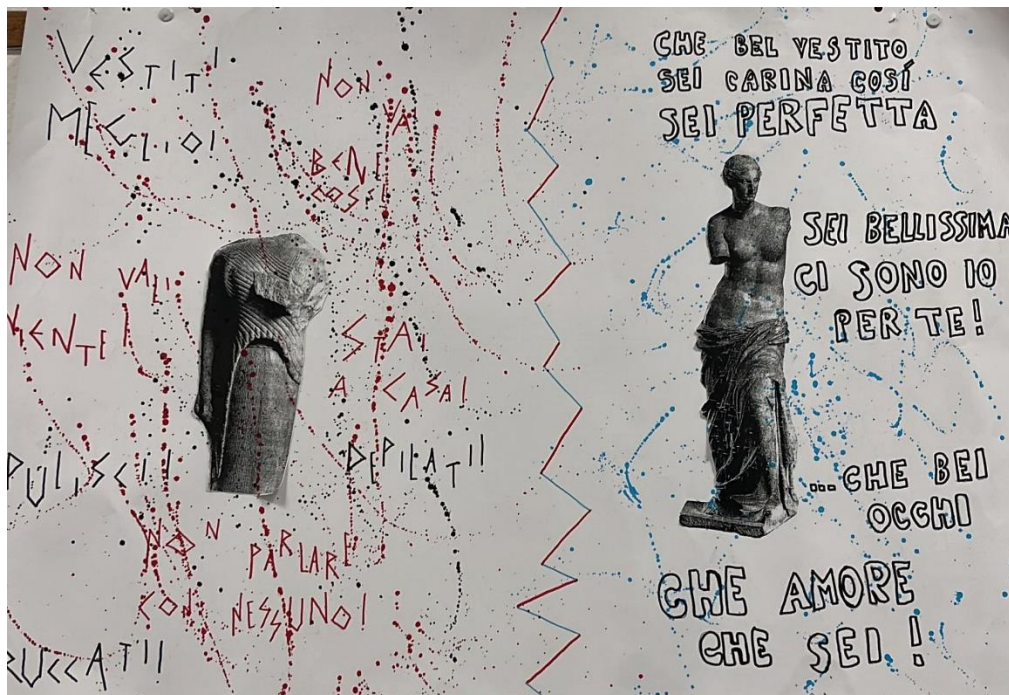 VESTITI
MEGLIO!
NON
VA
BENE
COSÌ
NON VALI
NIENTE!
STAI
A CASA!
PULISCI!!
DEPILATI!
NON PARLARE
CON NESSUNO!
RUCCATI!
CHE BEL VESTITO
SEI CARINA COSÍ
SEI PERFETTA
SEI BELLISSIMA
CI SONO IO
PER TE!
...CHE BEI
OCCHI
CHE AMORE
CHE SEI!